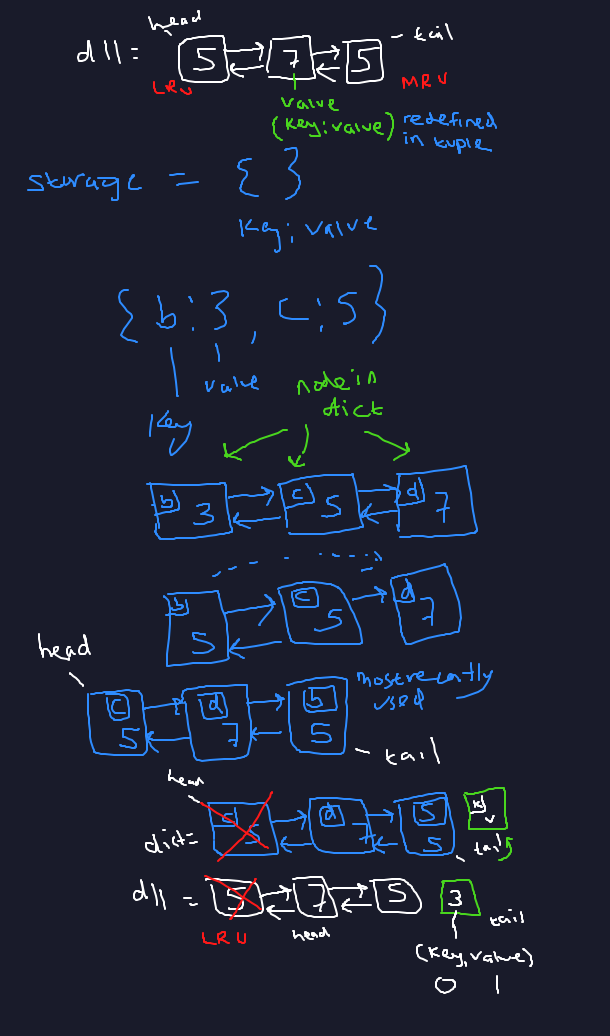 head
dll = 5 7 5 - tail
LRU MRU
value
(key:value) redefined
in tuple
storage = { }
key: value
{b:3, c:5}
value
key
node in
dict
b 3 c 5 d 7
b 5 c 5 d 7
head
c 5 d 7 5 5
most recently
used
- tail
head
dict= 5 d 7 5 5 k v
tail
dll = 5 7 5 3
LRU head tail
(key,value)
0 1